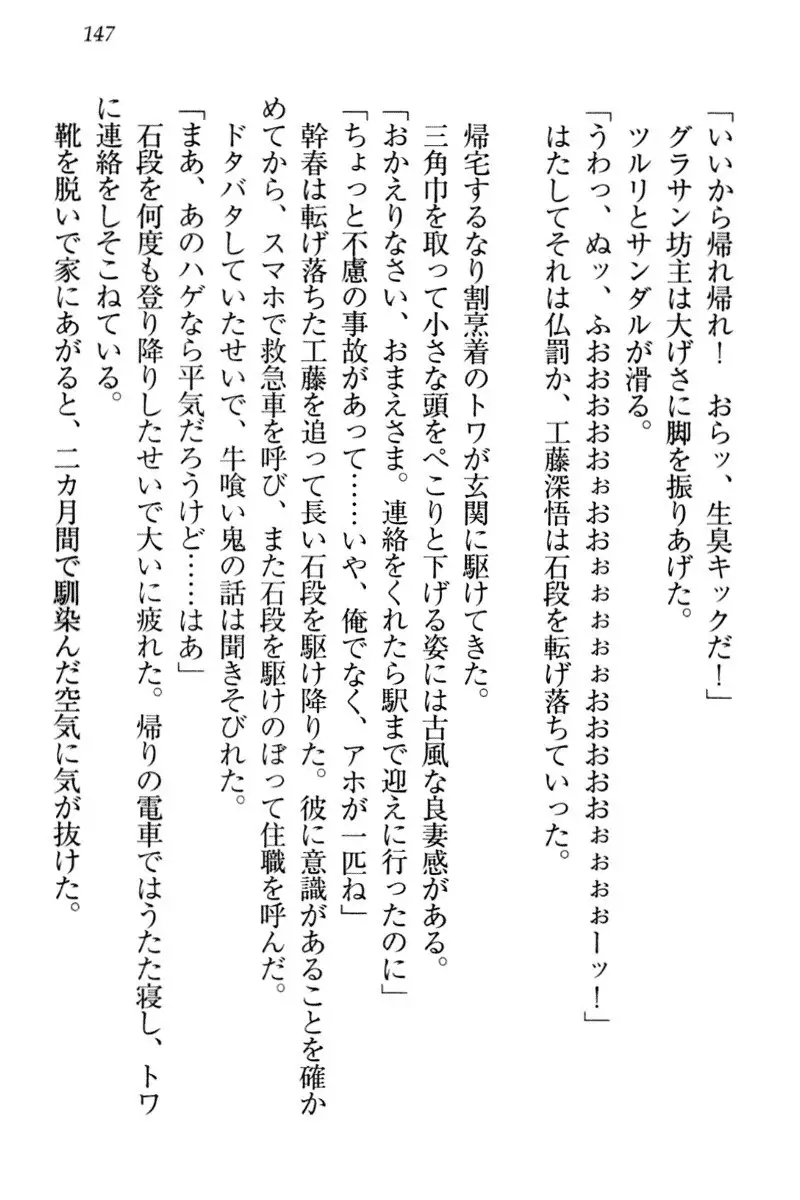 147
「いいから帰れ帰れ！　おらッ、生臭キックだ！」
グラサン坊主は大げさに脚を振りあげた。
ツルリとサンダルが滑る。
「うわっ、ぬッ、ふおおおおおぉおおぉぉぉぉぉおおおおおぉぉぉぉーッ！」
はたしてそれは仏罰か、工藤深悟は石段を転げ落ちていった。
帰宅するなり割烹着のトワが玄関に駆けてきた。
三角巾を取って小さな頭をぺこりと下げる姿には古風な良妻感がある。
「おかえりなさい、おまえさま。連絡をくれたら駅まで迎えに行ったのに」
「ちょっと不慮の事故があって……いや、俺でなく、アホが一匹ね」
幹春は転げ落ちた工藤を追って長い石段を駆け降りた。彼に意識があることを確か
めてから、スマホで救急車を呼び、また石段を駆けのぼって住職を呼んだ。
ドタバタしていたせいで、牛喰い鬼の話は聞きそびれた。
「まあ、あのハゲなら平気だろうけど……はあ」
石段を何度も登り降りしたせいで大いに疲れた。帰りの電車ではうたた寝し、トワ
に連絡をしそこねている。
靴を脱いで家にあがると、二カ月間で馴染んだ空気に気が抜けた。